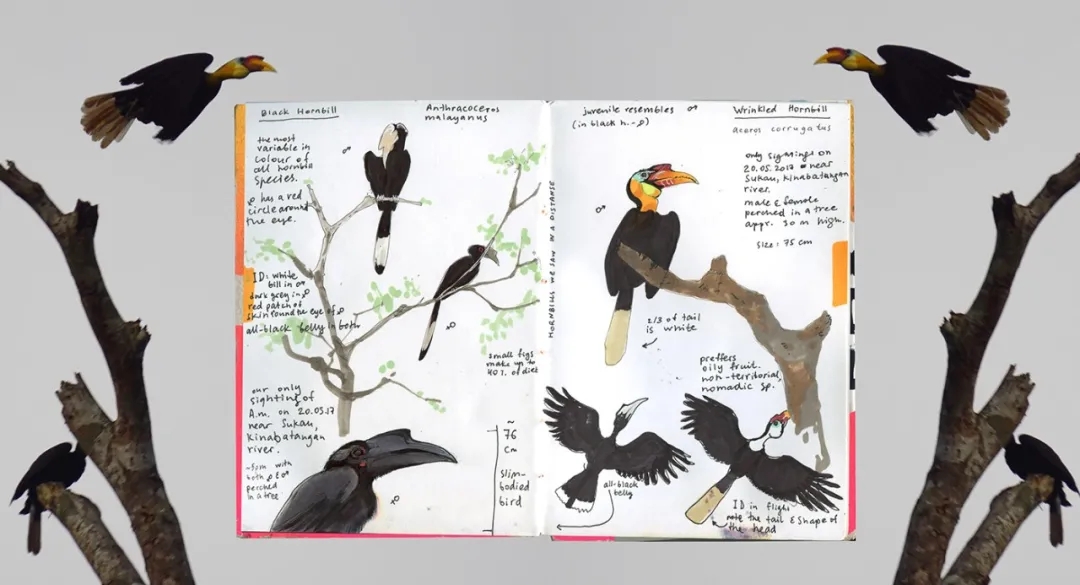 Black Hornbill
Anthracoceros
malayanus
the most
variable in
colour of
all hornbill
species.
♂
♀ has a red
circle around
the eye.
ID: white
bill in ♂
dark grey in ♀
red patch of
skin round the eye of ♀
all-black belly in both
♀
small figs
make up to
40% of diet
our only
sighting of
A.m. on 20.05.17
near Sukau,
Kinabatangan
river.
~50m with
both ♀ & ♂
perched
in a tree
♀
~
76
cm
slim-
bodied
bird
HORNBILLS WE SAW IN A DISTANSE
juvenile resembles ♂
(in black h.
Wrinkled Hornbill
aceros corrugatus
only signings on
20.05.2017 near
Sukau, Kinabatangan
river.
male & female
perched in a tree
appr. 30 m high.
size: 75 cm
♂
2/3 of tail
is white
preffers
oily fruit.
non-territorial,
nomadic sp.
all-black
belly
ID in flight
note the tail & shape of
the head